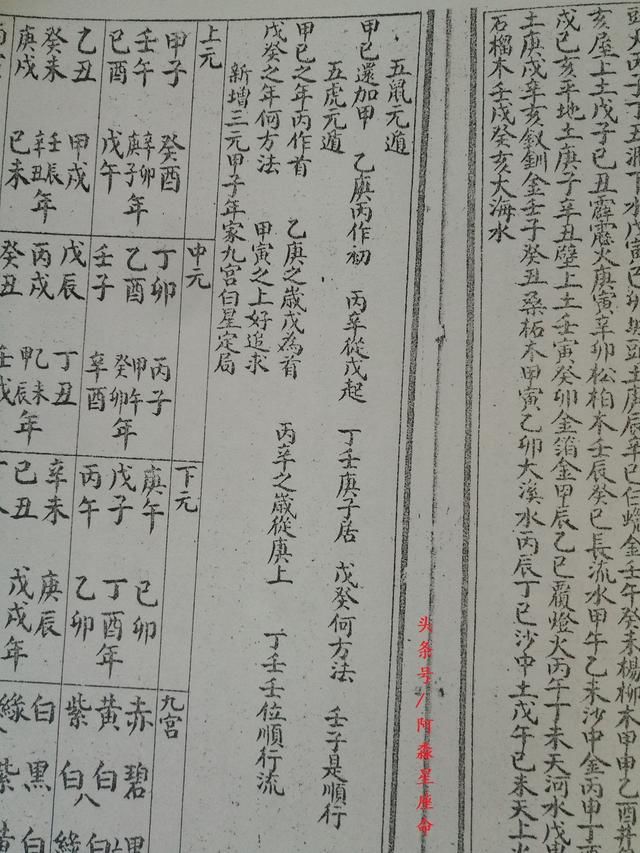 頭火丙子丁丑澗下水戊寅己卯城頭土庚辰辛巳白蠟金壬午癸未楊柳木甲申乙酉井
亥屋上土戊子己丑霹靂火庚寅辛卯松柏木壬辰癸巳長流水甲午乙未沙中金丙申丁
戊己亥平地土庚子辛丑壁上土壬寅癸卯金箔金甲辰乙巳覆燈火丙午丁未天河水戊
土庚戌辛亥釵釧金壬子癸丑桑柘木甲寅乙卯大溪水丙辰丁巳沙中土戊午己未天上
石榴木壬戌癸亥大海水
五鼠元遁
甲己還加甲 乙庚丙作初 丙辛從戊起 丁壬庚子居 戊癸何方法 壬子是順行
五虎元遁
甲己之年丙作首 乙庚之歲戊為首 丙辛之歲從庚上 丁壬壬位順行流
戊癸之年何方法 甲寅之上好追求
新增三元甲子年家九宮白星定局
上元 中元 下元 九宮
甲子 癸酉 丁卯 丙子 庚午 己卯 赤碧
壬午 辛卯 庚子年 乙酉 甲午 癸卯年 戊子 丁酉年 黃白
己酉 戊午 壬子 辛酉 丙午 乙卯 紫白八
乙丑 甲戌 戊辰 丁丑 辛未 庚辰 白黑
癸未 壬辰 辛丑年 丙戌 乙未 甲辰年 己丑 戊戌年 綠紫
庚戌 己未 癸丑 壬戌
头条号/阿淼星座命